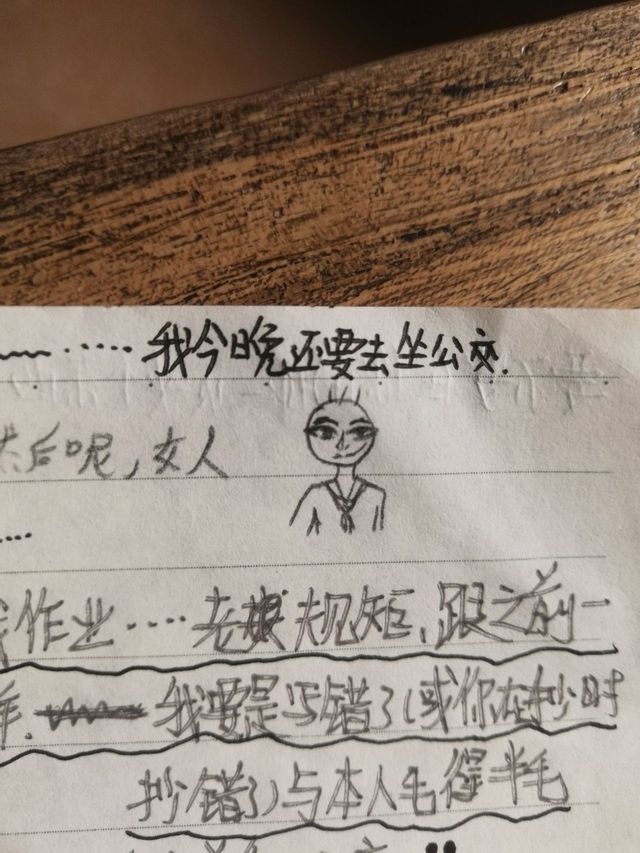 ……我今晚还要去坐公交.
然后呢,女人
……
作业……老娘规矩,跟之前一
样.我要是写错了(或你在抄时
抄错了)与本人毛得半毛